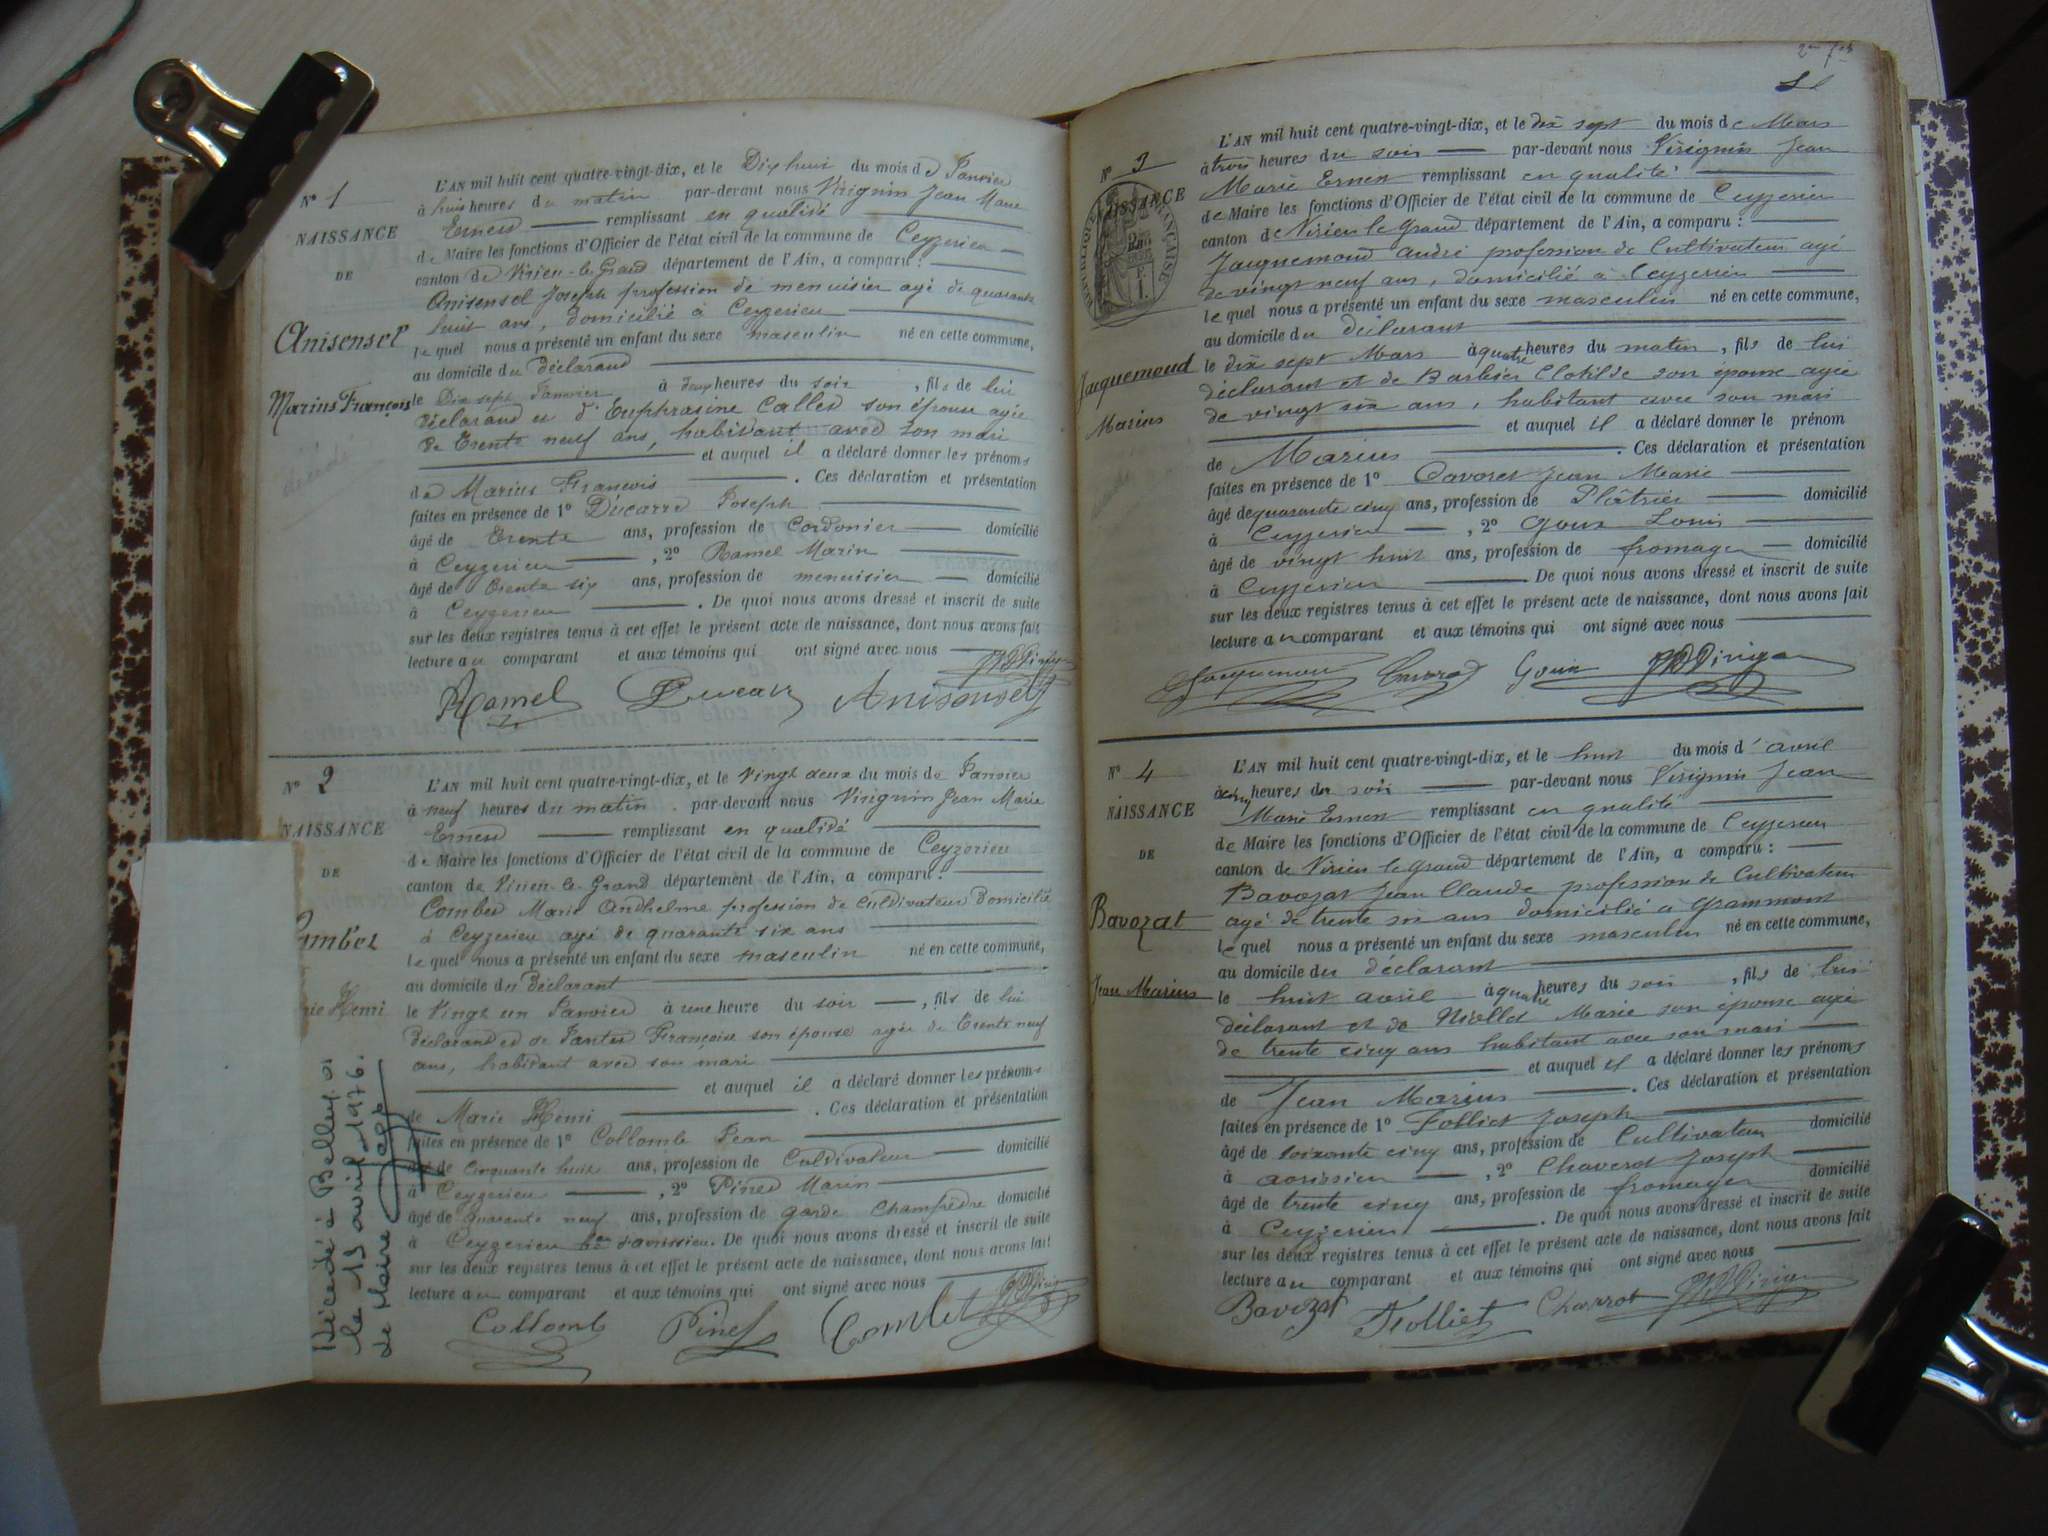 N° 1
NAISSANCE
DE
Anisensel
Marius François
décédé
L'AN mil huit cent quatre-vingt-dix, et le Dix huit du mois de Janvier
à huit heures du matin par-devant nous Virignin Jean Marie
Ernest remplissant en qualité
de Maire les fonctions d'Officier de l'état civil de la commune de Ceyzerieu
canton de Virieu-le-Grand département de l'Ain, a comparu :
Anisensel Joseph profession de menuisier agé de quarante
huit ans, domicilié à Ceyzerieu
lequel nous a présenté un enfant du sexe masculin né en cette commune,
au domicile du déclarand
le Dix sept Janvier à heures du soir , fils de lui
déclarand et d'Euphrasine Called son épouse agée
de Trente neuf ans, habitant avec son mari
et auquel il a déclaré donner les prénoms
de Marius François . Ces déclaration et présentation
faites en présence de 1° Ducarre Joseph
âgé de Trente ans, profession de Cordonier domicilié
à Ceyzerieu , 2° Ramel Marin
âgé de trente six ans, profession de menuisier domicilié
à Ceyzerieu . De quoi nous avons dressé et inscrit de suite
sur les deux registres tenus à cet effet le présent acte de naissance, dont nous avons fait
lecture au comparant et aux témoins qui ont signé avec nous
Ramel Anisensel
N° 2
NAISSANCE
DE
rie Henri
Décédé à Belley
le 13 avril 1976.
de Maire
L'AN mil huit cent quatre-vingt-dix, et le Vingt deux du mois de Janvier
à neuf heures du matin . par-devant nous Virignin Jean Marie
Ernest remplissant en qualité
de Maire les fonctions d'Officier de l'état civil de la commune de Ceyzerieu
canton de Virieu-le-Grand département de l'Ain, a comparu :
Combet Marie Andhelme profession de cultivateur domicilié
à Ceyzerieu agé de quarante six ans
lequel nous a présenté un enfant du sexe masculin né en cette commune,
au domicile du Déclarant
le Vingt un Janvier à une heure du soir , fils de lui
Déclarand et de Françoise son épouse agée de Trente neuf
ans, habitant avec son mari
et auquel il a déclaré donner les prénoms
de Marie Henri . Ces déclaration et présentation
faites en présence de 1° Collomb Jean
âgé de Cinquante huit ans, profession de Cultivateur domicilié
à Ceyzerieu , 2° Pined Marin
âgé de quarante neuf ans, profession de garde Champêtre domicilié
à Ceyzerieu . De quoi nous avons dressé et inscrit de suite
sur les deux registres tenus à cet effet le présent acte de naissance, dont nous avons fait
lecture au comparant et aux témoins qui ont signé avec nous
Collomb Pinet Combet
N° 3
NAISSANCE
REPUBLIQUE FRANÇAISE
Jacquemoud
Marius
L'AN mil huit cent quatre-vingt-dix, et le dix sept du mois de Mars
à trois heures du soir par-devant nous Virignin Jean
Marie Ernest remplissant en qualité
de Maire les fonctions d'Officier de l'état civil de la commune de Ceyzerieu
canton de Virieu le Grand département de l'Ain, a comparu :
Jacquemoud André profession de Cultivateur agé
de vingt neuf ans, domicilié à Ceyzerieu
lequel nous a présenté un enfant du sexe masculin né en cette commune,
au domicile du déclarant
le dix sept Mars à quatre heures du matin , fils de lui
déclarant et de Barbier Clotilde son épouse agée
de vingt six ans, habitant avec son mari
et auquel il a déclaré donner le prénom
de Marius . Ces déclaration et présentation
faites en présence de 1° Cavoret Jean Marie
âgé de quarante cinq ans, profession de Plâtrier domicilié
à Ceyzerieu , 2° Goux Louis
âgé de vingt huit ans, profession de fromager domicilié
à Ceyzerieu . De quoi nous avons dressé et inscrit de suite
sur les deux registres tenus à cet effet le présent acte de naissance, dont nous avons fait
lecture au comparant et aux témoins qui ont signé avec nous
N° 4
NAISSANCE
DE
Bavozat
Jean Marius
L'AN mil huit cent quatre-vingt-dix, et le huit du mois d'avril
à cinq heures du soir par-devant nous Virignin Jean
Marie Ernest remplissant en qualité
de Maire les fonctions d'Officier de l'état civil de la commune de Ceyzerieu
canton de Virieu le Grand département de l'Ain, a comparu :
Bavozat Jean Claude profession de Cultivateur
agé de trente six ans domicilié à Grammont
lequel nous a présenté un enfant du sexe masculin né en cette commune,
au domicile du déclarant
le huit avril à quatre heures du soir , fils de lui
déclarant et de Marie son épouse agée
de trente cinq ans habitant avec son mari
et auquel il a déclaré donner les prénoms
de Jean Marius . Ces déclaration et présentation
faites en présence de 1° Folliet Joseph
âgé de soixante cinq ans, profession de Cultivateur domicilié
à avrissieu , 2° Chaverot Joseph
âgé de trente cinq ans, profession de fromager domicilié
à Ceyzerieu . De quoi nous avons dressé et inscrit de suite
sur les deux registres tenus à cet effet le présent acte de naissance, dont nous avons fait
lecture au comparant et aux témoins qui ont signé avec nous
Bavozat Folliet